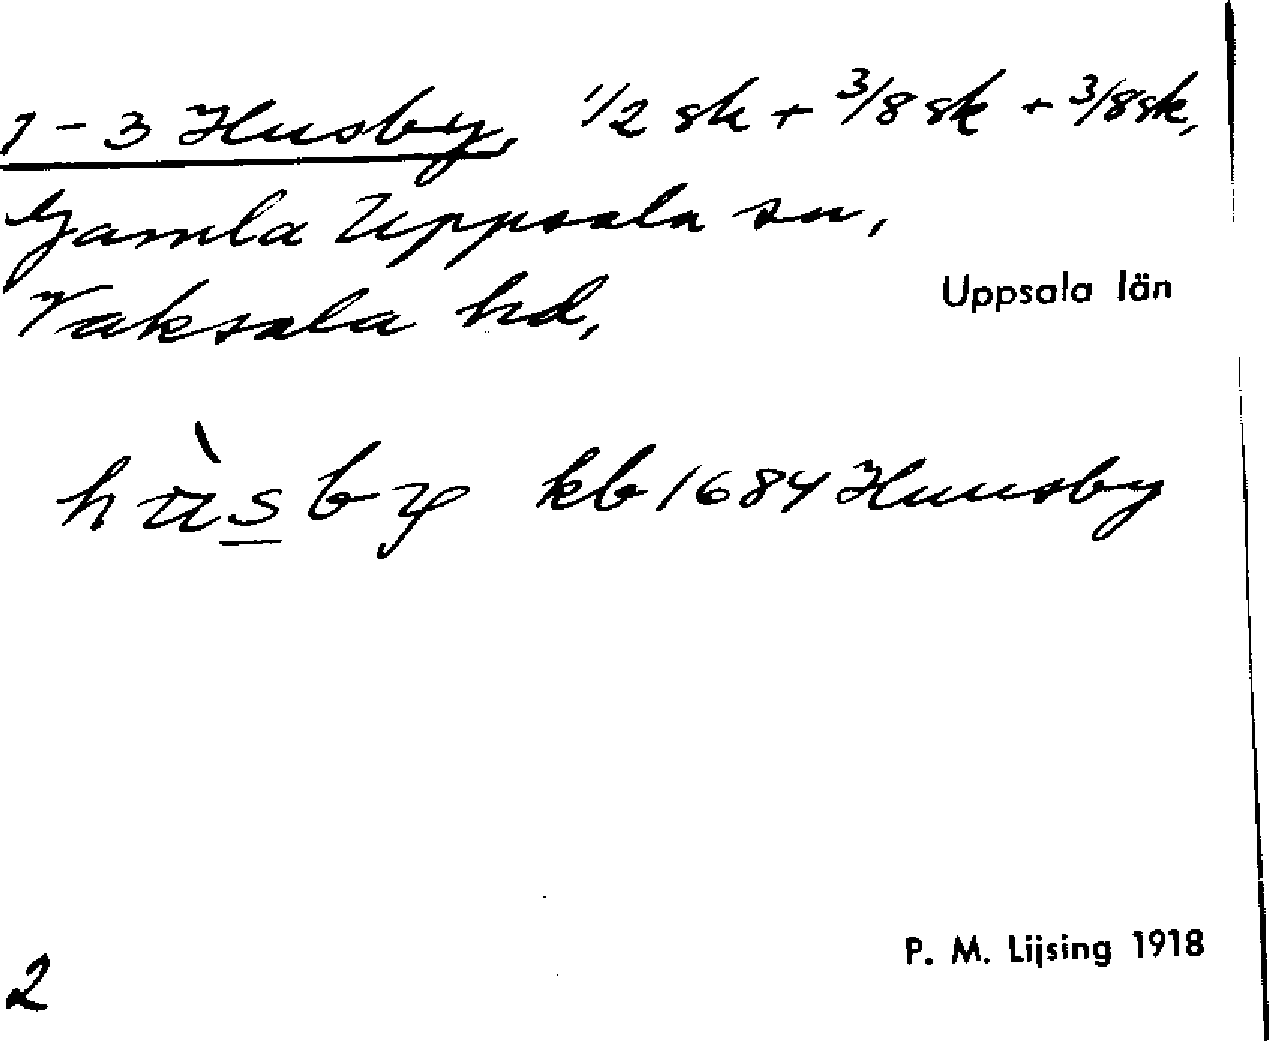 1-3 Husby, 1/2 sk + 3/8 sk + 3/8 sk,
Gamla Uppsala sn,
Vaksala hd,
Uppsala län
hùsby kb 1684 Huusby
P. M. Lijsing 1918
2